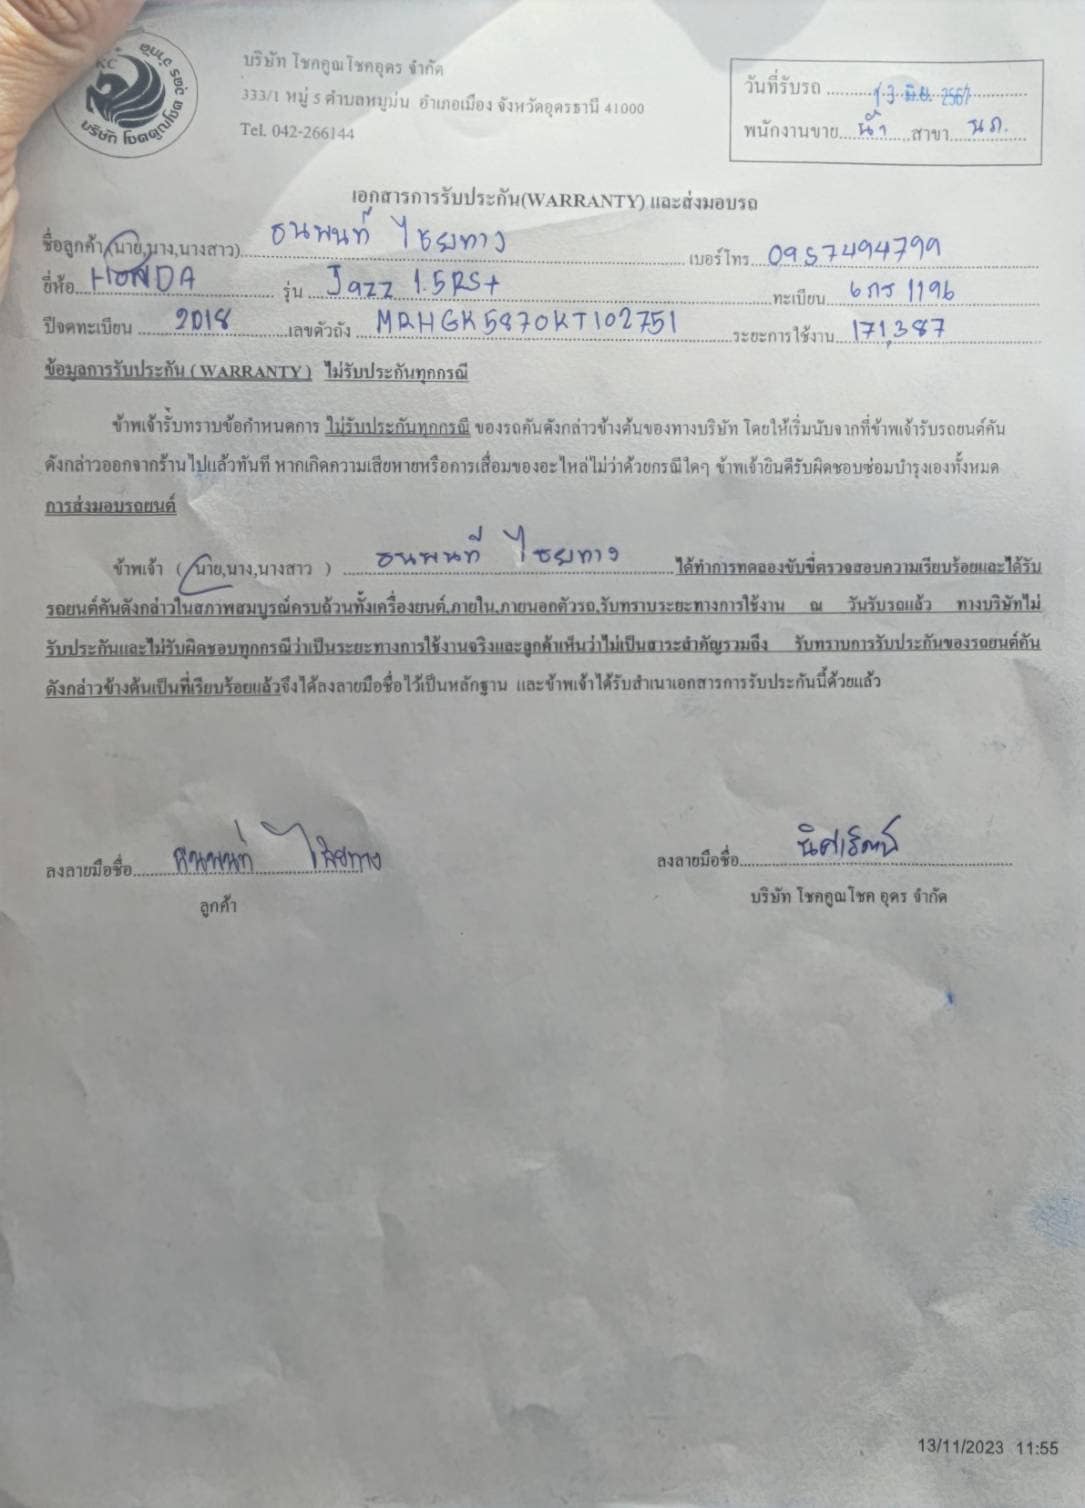 บริษัท โชคคูณโชคอุดร จำกัด
333/1 หมู่ 5 ตำบลหมูม่น อำเภอเมือง จังหวัดอุดรธานี 41000
Tel. 042-266144
KC
บริษัท โชคคูณโชค อุดร จำกัด
วันที่รับรถ 13 มิ.ย. 2567
พนักงานขาย น้ำ สาขา นภ.
เอกสารการรับประกัน(WARRANTY) และส่งมอบรถ
ชื่อลูกค้า(นาย,นาง,นางสาว) ธนพนท์ ไชยทาง เบอร์โทร 0957494799
ยี่ห้อ HONDA รุ่น Jazz 1.5RS+ ทะเบียน 6กร 1196
ปีจดทะเบียน 2018 เลขตัวถัง MRHGK5870KT102751 ระยะการใช้งาน 171,387
ข้อมูลการรับประกัน ( WARRANTY ) ไม่รับประกันทุกกรณี
ข้าพเจ้ารับทราบข้อกำหนดการ ไม่รับประกันทุกกรณี ของรถคันดังกล่าวข้างต้นของทางบริษัท โดยให้เริ่มนับจากที่ข้าพเจ้ารับรถยนต์คัน
ดังกล่าวออกจากร้านไปแล้วทันที หากเกิดความเสียหายหรือการเสื่อมของอะไหล่ไม่ว่าด้วยกรณีใดๆ ข้าพเจ้ายินดีรับผิดชอบซ่อมบำรุงเองทั้งหมด
การส่งมอบรถยนต์
ข้าพเจ้า ( นาย,นาง,นางสาว ) ธนพนท์ ไชยทาง ได้ทำการทดลองขับขี่ตรวจสอบความเรียบร้อยและได้รับ
รถยนต์คันดังกล่าวในสภาพสมบูรณ์ครบถ้วนทั้งเครื่องยนต์,ภายใน,ภายนอกตัวรถ,รับทราบระยะทางการใช้งาน ณ วันรับรถแล้ว ทางบริษัทไม่
รับประกันและไม่รับผิดชอบทุกกรณีว่าเป็นระยะทางการใช้งานจริงและลูกค้าเห็นว่าไม่เป็นสาระสำคัญรวมถึง รับทราบการรับประกันของรถยนต์คัน
ดังกล่าวข้างต้นเป็นที่เรียบร้อยแล้วจึงได้ลงลายมือชื่อไว้เป็นหลักฐาน และข้าพเจ้าได้รับสำเนาเอกสารการรับประกันนี้ด้วยแล้ว
ลงลายมือชื่อ ธนพนท์ ไชยทาง ลงลายมือชื่อ
ลูกค้า บริษัท โชคคูณโชค อุดร จำกัด
13/11/2023 11:55